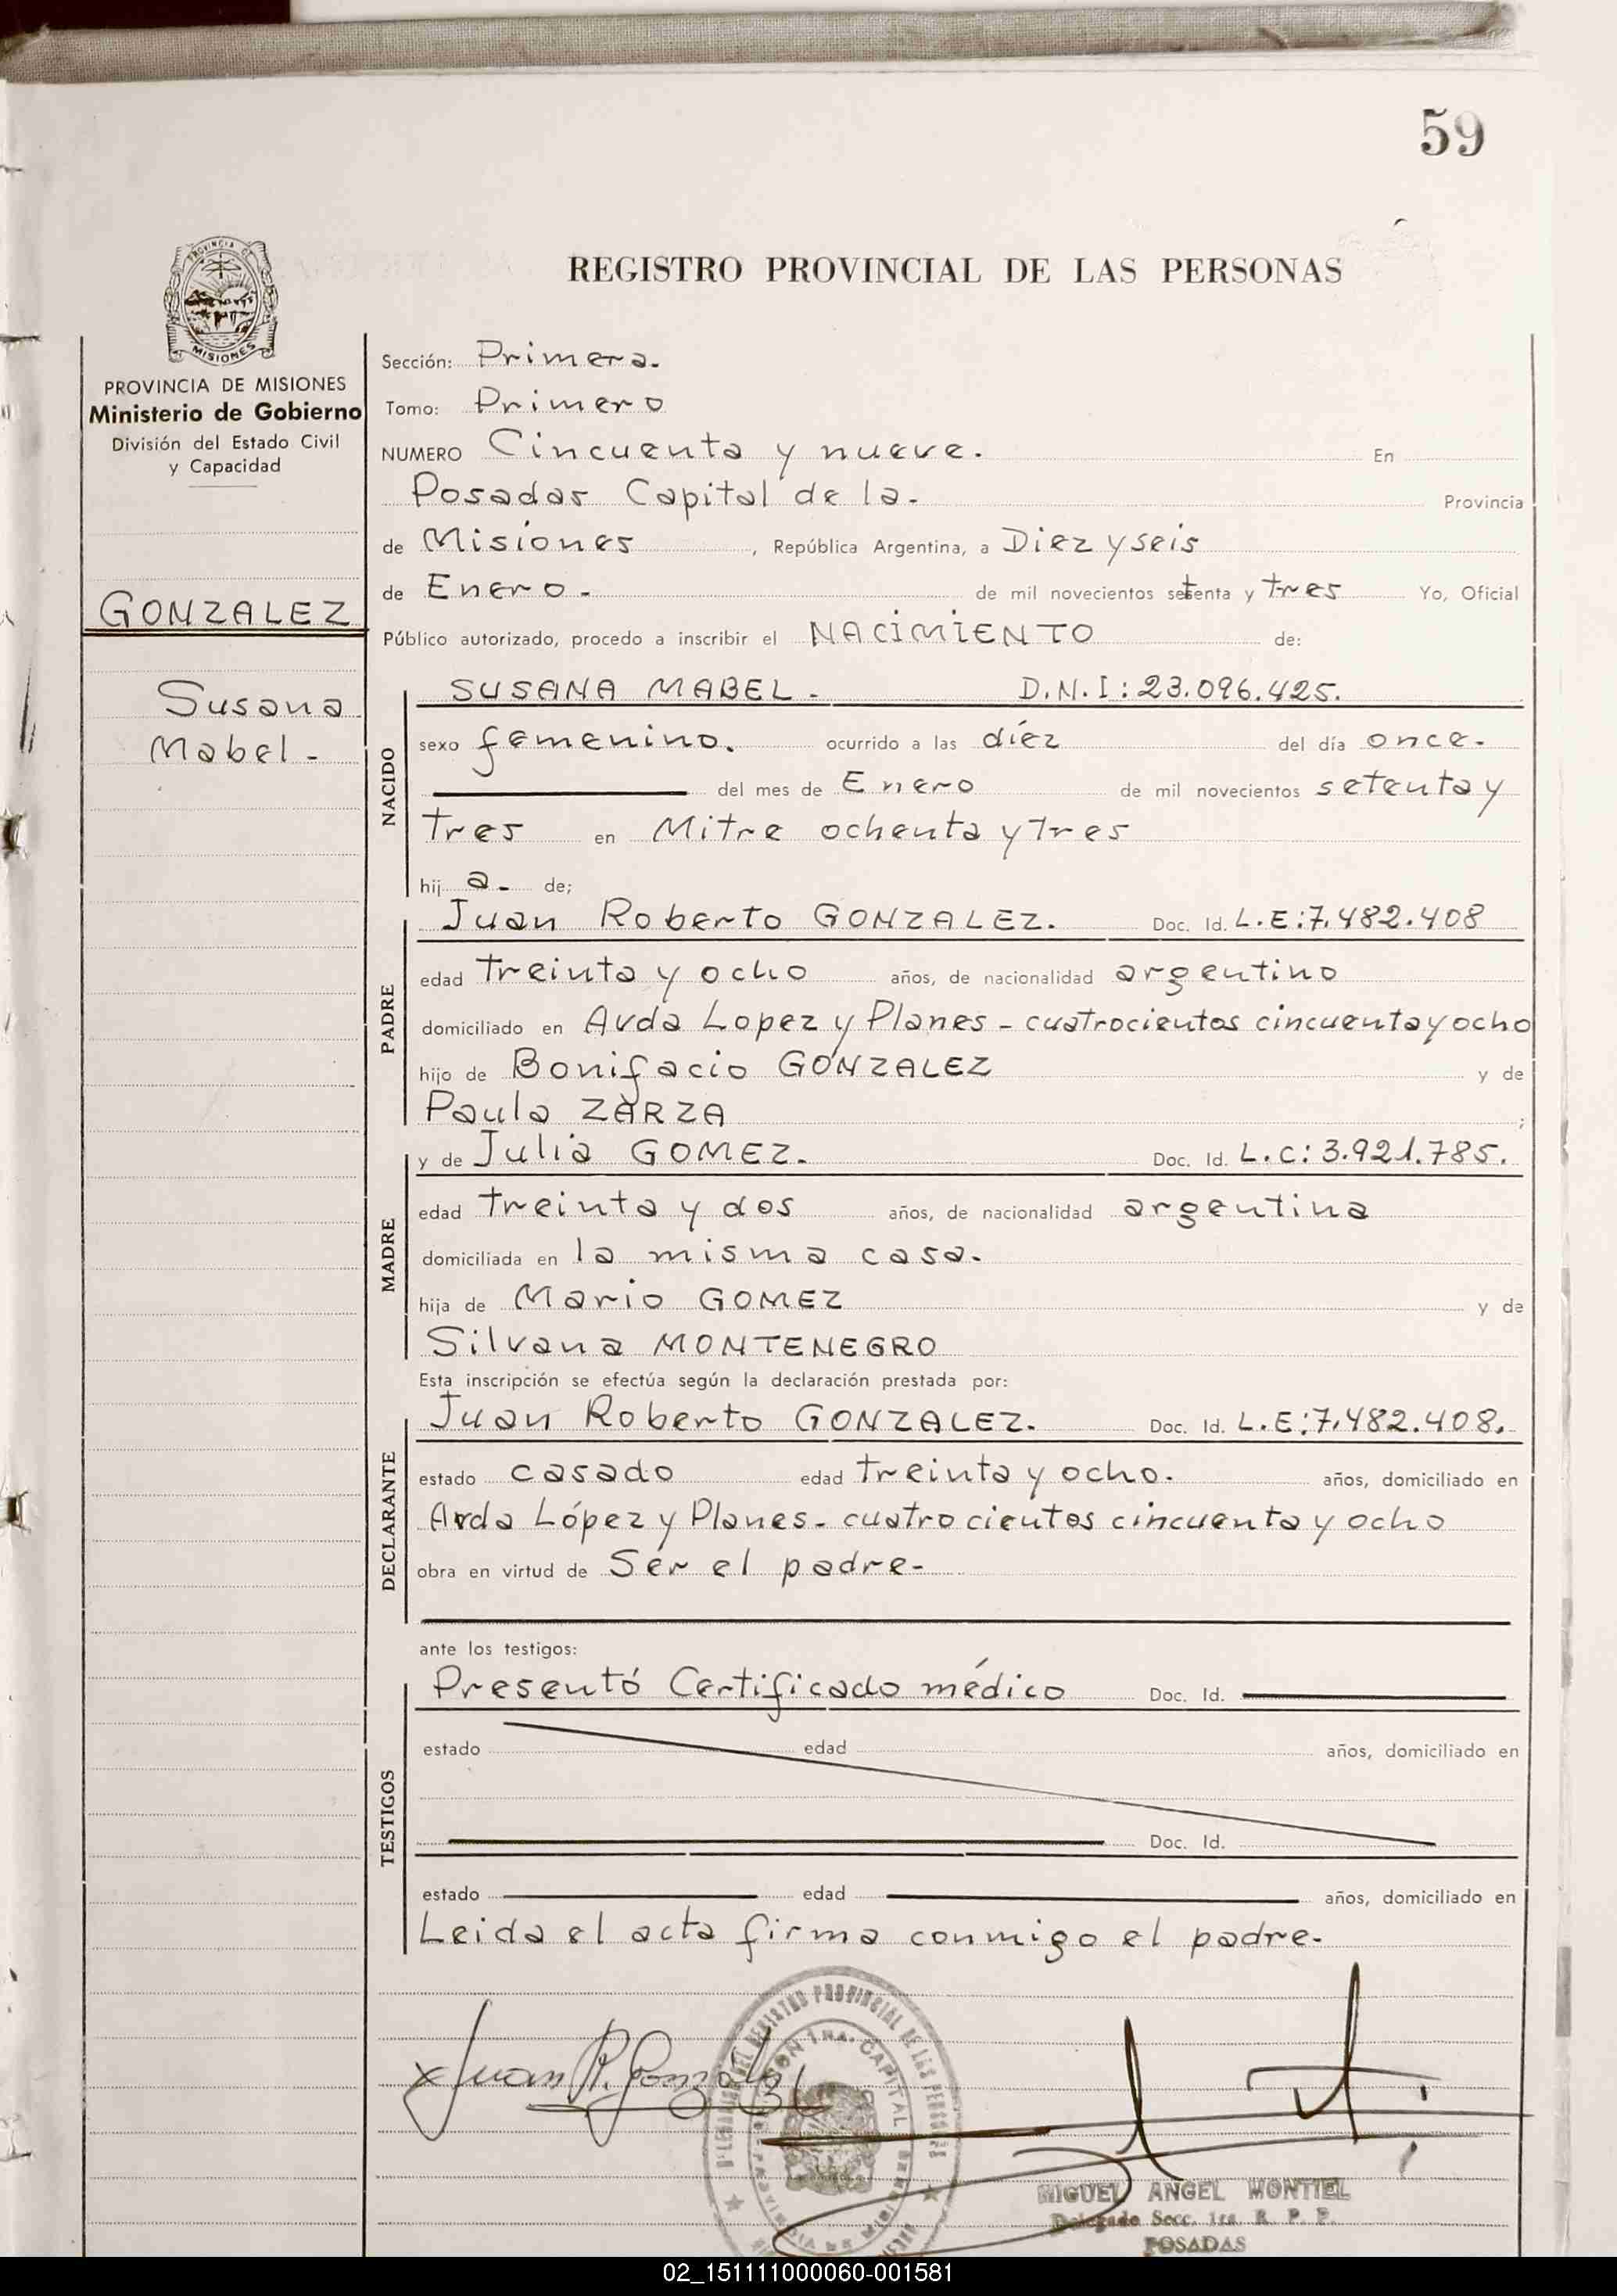 59
REGISTRO PROVINCIAL DE LAS PERSONAS
PROVINCIA DE
MISIONES
PROVINCIA DE MISIONES
Ministerio de Gobierno
División del Estado Civil
y Capacidad
GONZALEZ
Susana
Mabel -
Sección: Primera.
Tomo: Primero
NUMERO Cincuenta y nueve. En
Posadas Capital de la. Provincia
de Misiones , República Argentina, a Diez y seis
de Enero. de mil novecientos setenta y tres Yo, Oficial
Público autorizado, procedo a inscribir el NACIMIENTO de:
NACIDO
SUSANA MABEL. D.N.I: 23.096.425.
sexo femenino. ocurrido a las díez del día once.
del mes de Enero de mil novecientos setenta y
tres en Mitre ochenta y tres
hij a. de;
PADRE
Juan Roberto GONZALEZ. Doc. Id. L.E:7.482.408
edad treinta y ocho años, de nacionalidad argentino
domiciliado en Avda Lopez y Planes - cuatrocientos cincuenta y ocho
hijo de Bonifacio GONZALEZ y de
Paula ZARZA ;
MADRE
y de Julia GOMEZ. Doc. Id. L.C: 3.921.785.
edad treinta y dos años, de nacionalidad argentina
domiciliada en la misma casa.
hija de Mario GOMEZ y de
Silvana MONTENEGRO
Esta inscripción se efectúa según la declaración prestada por:
DECLARANTE
Juan Roberto GONZALEZ. Doc. Id. L.E:7.482.408.
estado casado edad treinta y ocho. años, domiciliado en
Avda López y Planes - cuatrocientos cincuenta y ocho
obra en virtud de Ser el padre-
ante los testigos:
TESTIGOS
Presentó Certificado médico Doc. Id.
estado edad años, domiciliado en
Doc. Id.
estado edad años, domiciliado en
Leida el acta firma conmigo el padre.
x Juan R. González
REGISTRO PROVINCIAL DE LAS PERSONAS
CAPITAL
MIGUEL ANGEL MONTIEL
Delegado Secc. 1ra. R. P. P.
POSADAS
02_151111000060-001581